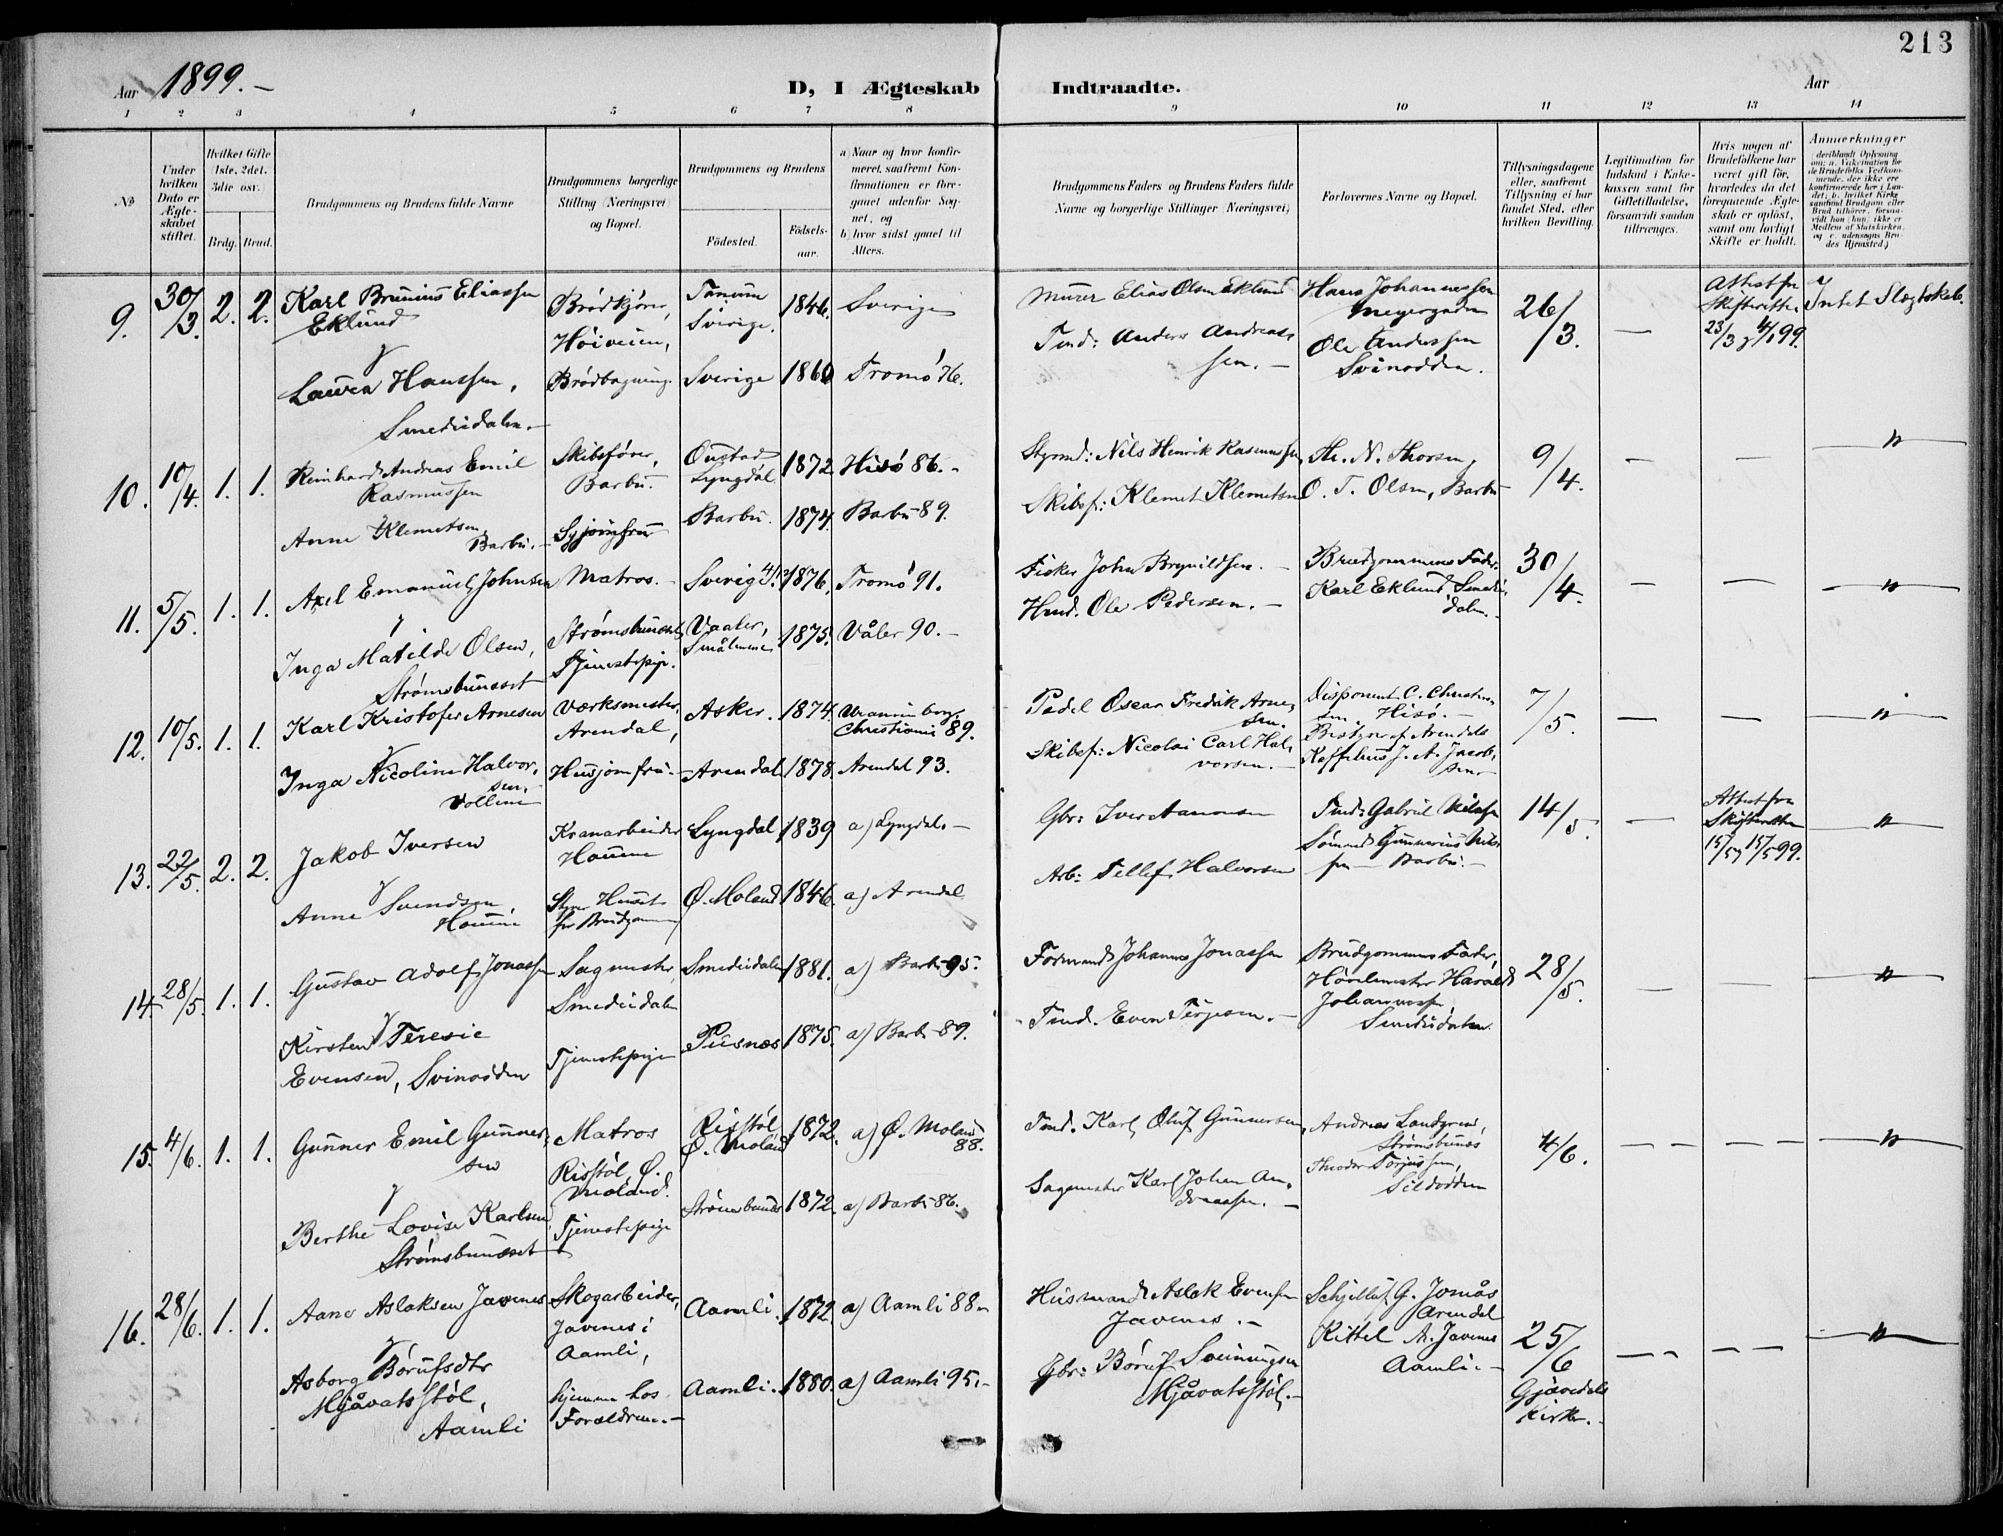 213
Aar 1899.-
D, I Ægteskab Indtraadte.
Aar
1 2 3 4 5 6 7 8 9 10 11 12 13 14
No
Under hvilken Dato er Ægteskabet stiftet.
Hvilket Gifte 1ste, 2det, 3die osv.
Brdg. Brud.
Brudgommens og Brudens fulde Navne
Brudgommens borgerlige Stilling (Næringsvei) og Bopæl.
Brudgommens og Brudens
Fødested.
Fødselsaar.
a) Naar og hvor konfirmeret, saafremt Konfirmationen er foregaaet udenfor Sognet, og
b) hvor sidst gaaet til Alters.
Brudgommens Faders og Brudens Faders fulde Navne og borgerlige Stillinger (Næringsvei)
Forlovernes Navne og Bopæl.
Tillysningsdagene eller, saafremt Tillysning ei har fundet Sted, efter hvilken Bevilling.
Legitimation for Indskud i Enkekassen samt for Giftetilladelse, forsaavidt saadan tiltrænges.
Hvis nogen af Brudefolkene har været gift før, hvorledes da det foregaaende Ægteskab er opløst, samt om lovligt Skifte er holdt.
Anmerkninger
9. 30/3. 2. 2. Karl Brunius Eliassen Eklund
Brødkjører, Høiveien,
Tanum Sverige. 1846. Sverige
Murer Elias Olsen Eklund
Hans Johannessen
26/3. —
Attest fra Skifteretten 23/3
Intet Slægtskab.
Laura Hanssen, Smededalen.-
Brødbagning. Sverige 1860 Tromø 76.
Tmd: Anders Andreassen.-
Ole Anderssen Svinodden.
10. 10/4. 1. 1. Reinhard Andreas Emil Rasmussen
Skibsfører, Barbu.
Lyngdal 1872 Hisø 86.-
Styrmd: Nils Henrik Rasmussen
Th. N. Thorsen,
9/4. — — "
Anne Klemetsen, Barbu.-
Syjomfru Barbu. 1874. Barbu 89.
Skibsf: Klemet Klemetsen
O. T. Olsen, Barbu
11. 5/5. 1. 1. Axel Emanuel Johnsen
Matros.- Sverig 1876, Tromø 91.
Fisker John Brynildsen.-
Brudgommens Fader.
30/4. — — "
Inga Matilde Olsen, Strømsbuneset
Strømsbuneset Tjenestepige.
Vaaler, Smålenene 1875. Våler 90.-
Hmd. Ole Pedersen.-
Karl Eklund Smededalen.
12. 10/5. 1. 1. Karl Kristofer Arnesen
Værksmester, Arendal,
Asker. 1874. Uranienborg Christiania 89.
Oscar Fredrik Arnesen.
Disponent C. Christensen Hisø.-
7/5. — — "
Inga Nicoline Halvorsen.- Vollene
Husjomfru.- Arendal 1878. Arendal 93.
Skibsf: Nicolai Carl Halvorsen.-
Bestyrer af Arendals Kaffehus J. A. Jacobsen
13. 22/5. 2. 2. Jakob Iversen
Kranarbeider
Lyngdal 1839 a) Lyngdal.-
Gbr: Iver Aanonsen
Tmd: Gabriel Nilssen
14/5. —
Attest fra Skifteretten 15/5 99. "
Anne Svendsen,
Styrer Huset for Brudgommen
Ø. Moland 1846. a) Arendal
Arb: Tellef Halvorsen
Sømand Gunnerius Nilssen — Barbu.-
14. 28/5. 1. 1. Gustav Adolf Jonassen
Sagmester, Smededalen
Smededalen 1881. a) Barbu 95.
Formand Johannes Jonassen
Brudgommens Fader,
28/5. — — "
Kirsten Teresie Evensen, Svinodden
Tjenestepige Pusnes 1875. a) Barbu 89.
Tmd. Even Terjesen.-
Høvlemester Harald Johannessen Smededalen.
15. 4/6. 1. 1. Gunner Emil Gunnersen
Matros Risstøl, Ø. Moland.
Risstøl Ø. Moland 1872. a) Ø. Moland 88.
Tmd. Karl Oluf Gunnersen,
Andreas Landgren, Strømsbunes
4/6. — — — — "
Berthe Lovise Karlsen Strømsbuneset
Tjenestepige
Strømsbunes 1872. a) Barbu 86.
Sagmester Karl Johan Andreassen.-
Theodor Torjussen, Sildodden
16. 28/6. 1. 1. Aane Aslaksen Javenes
Skogarbeider, Javenes i Aamli,
Aamli. 1872. a) Aamli 88.-
Husmand Aslak Evensen Javenes.-
G. Jomås Arendal
25/6 Gjøvedals Kirke.-
— — — — "
Asborg Børufsdtr Mjåvatsstøl, Aamli
hjemme hos Forældrene.-
Aamli. 1880. a) Aamli 95.-
Gbr: Børuf Sveinungsen Mjåvatsstøl.-
Kittel A. Javenes Aamli.-